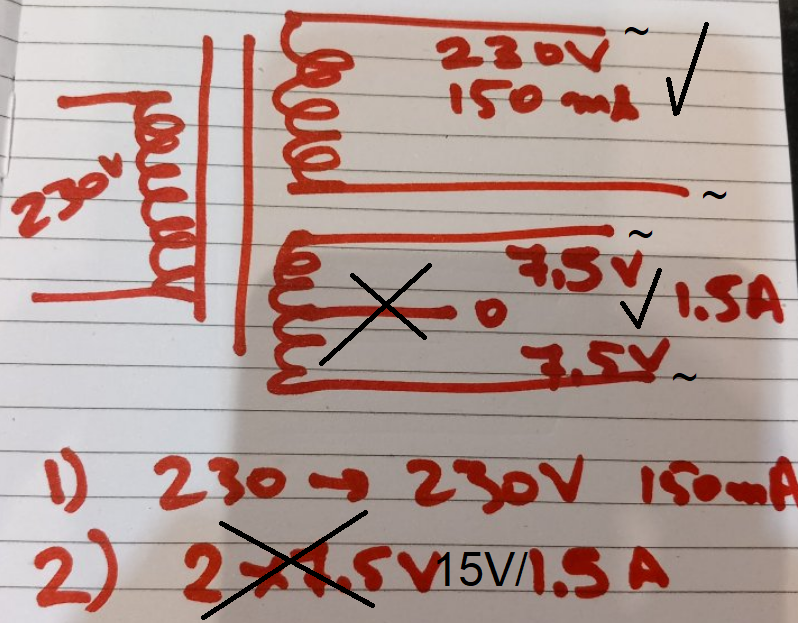 ~
230V
150 mA
~
230V
~
7.5V
0
1.5A
7.5V
~
1) 230 → 230V 150mA
2) 2 x 7.5V 15V/1.5A